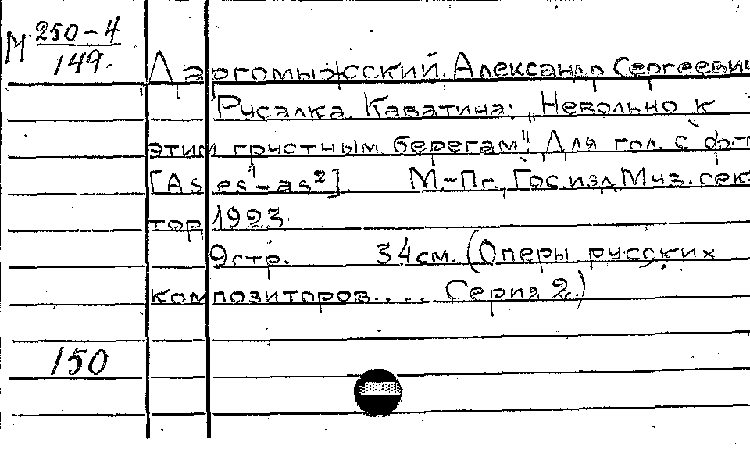 М 250-4
149.
Даргомыжский, Александр Сергеевич
Русалка. Каватина: „Невольно к
этим грустным берегам". Для гол. с ф-п
[As, es¹-as²]. М.-Пг., Гос. изд. Муз. сек-
тор, 1923.
9 стр. 34 см. (Оперы русских
композиторов.... Серия 2.)
150